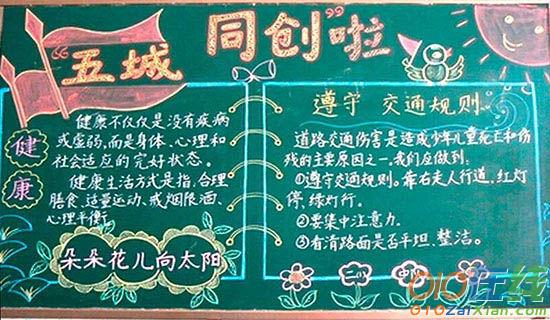 “五城 同创”啦
健康
健康不仅仅是没有疾病
或虚弱，而是身体、心理和
社会适应的完好状态。
健康生活方式是指，合理
膳食、适量运动、戒烟限酒、
心理平衡。
朵朵花儿向太阳
遵守 交通规则。
道路交通伤害是造成少年儿童死亡和伤
残的主要原因之一，我们应做到：
①遵守交通规则。靠右走人行道，红灯
停，绿灯行。
②要集中注意力。
③看清路面是否平坦、整洁。
010在线
010zaixian.com